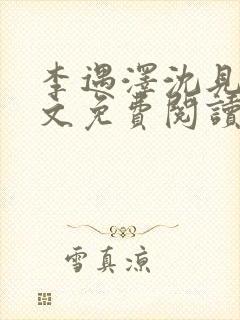 李遇澤沈見
文免費閱讀
雪真凉